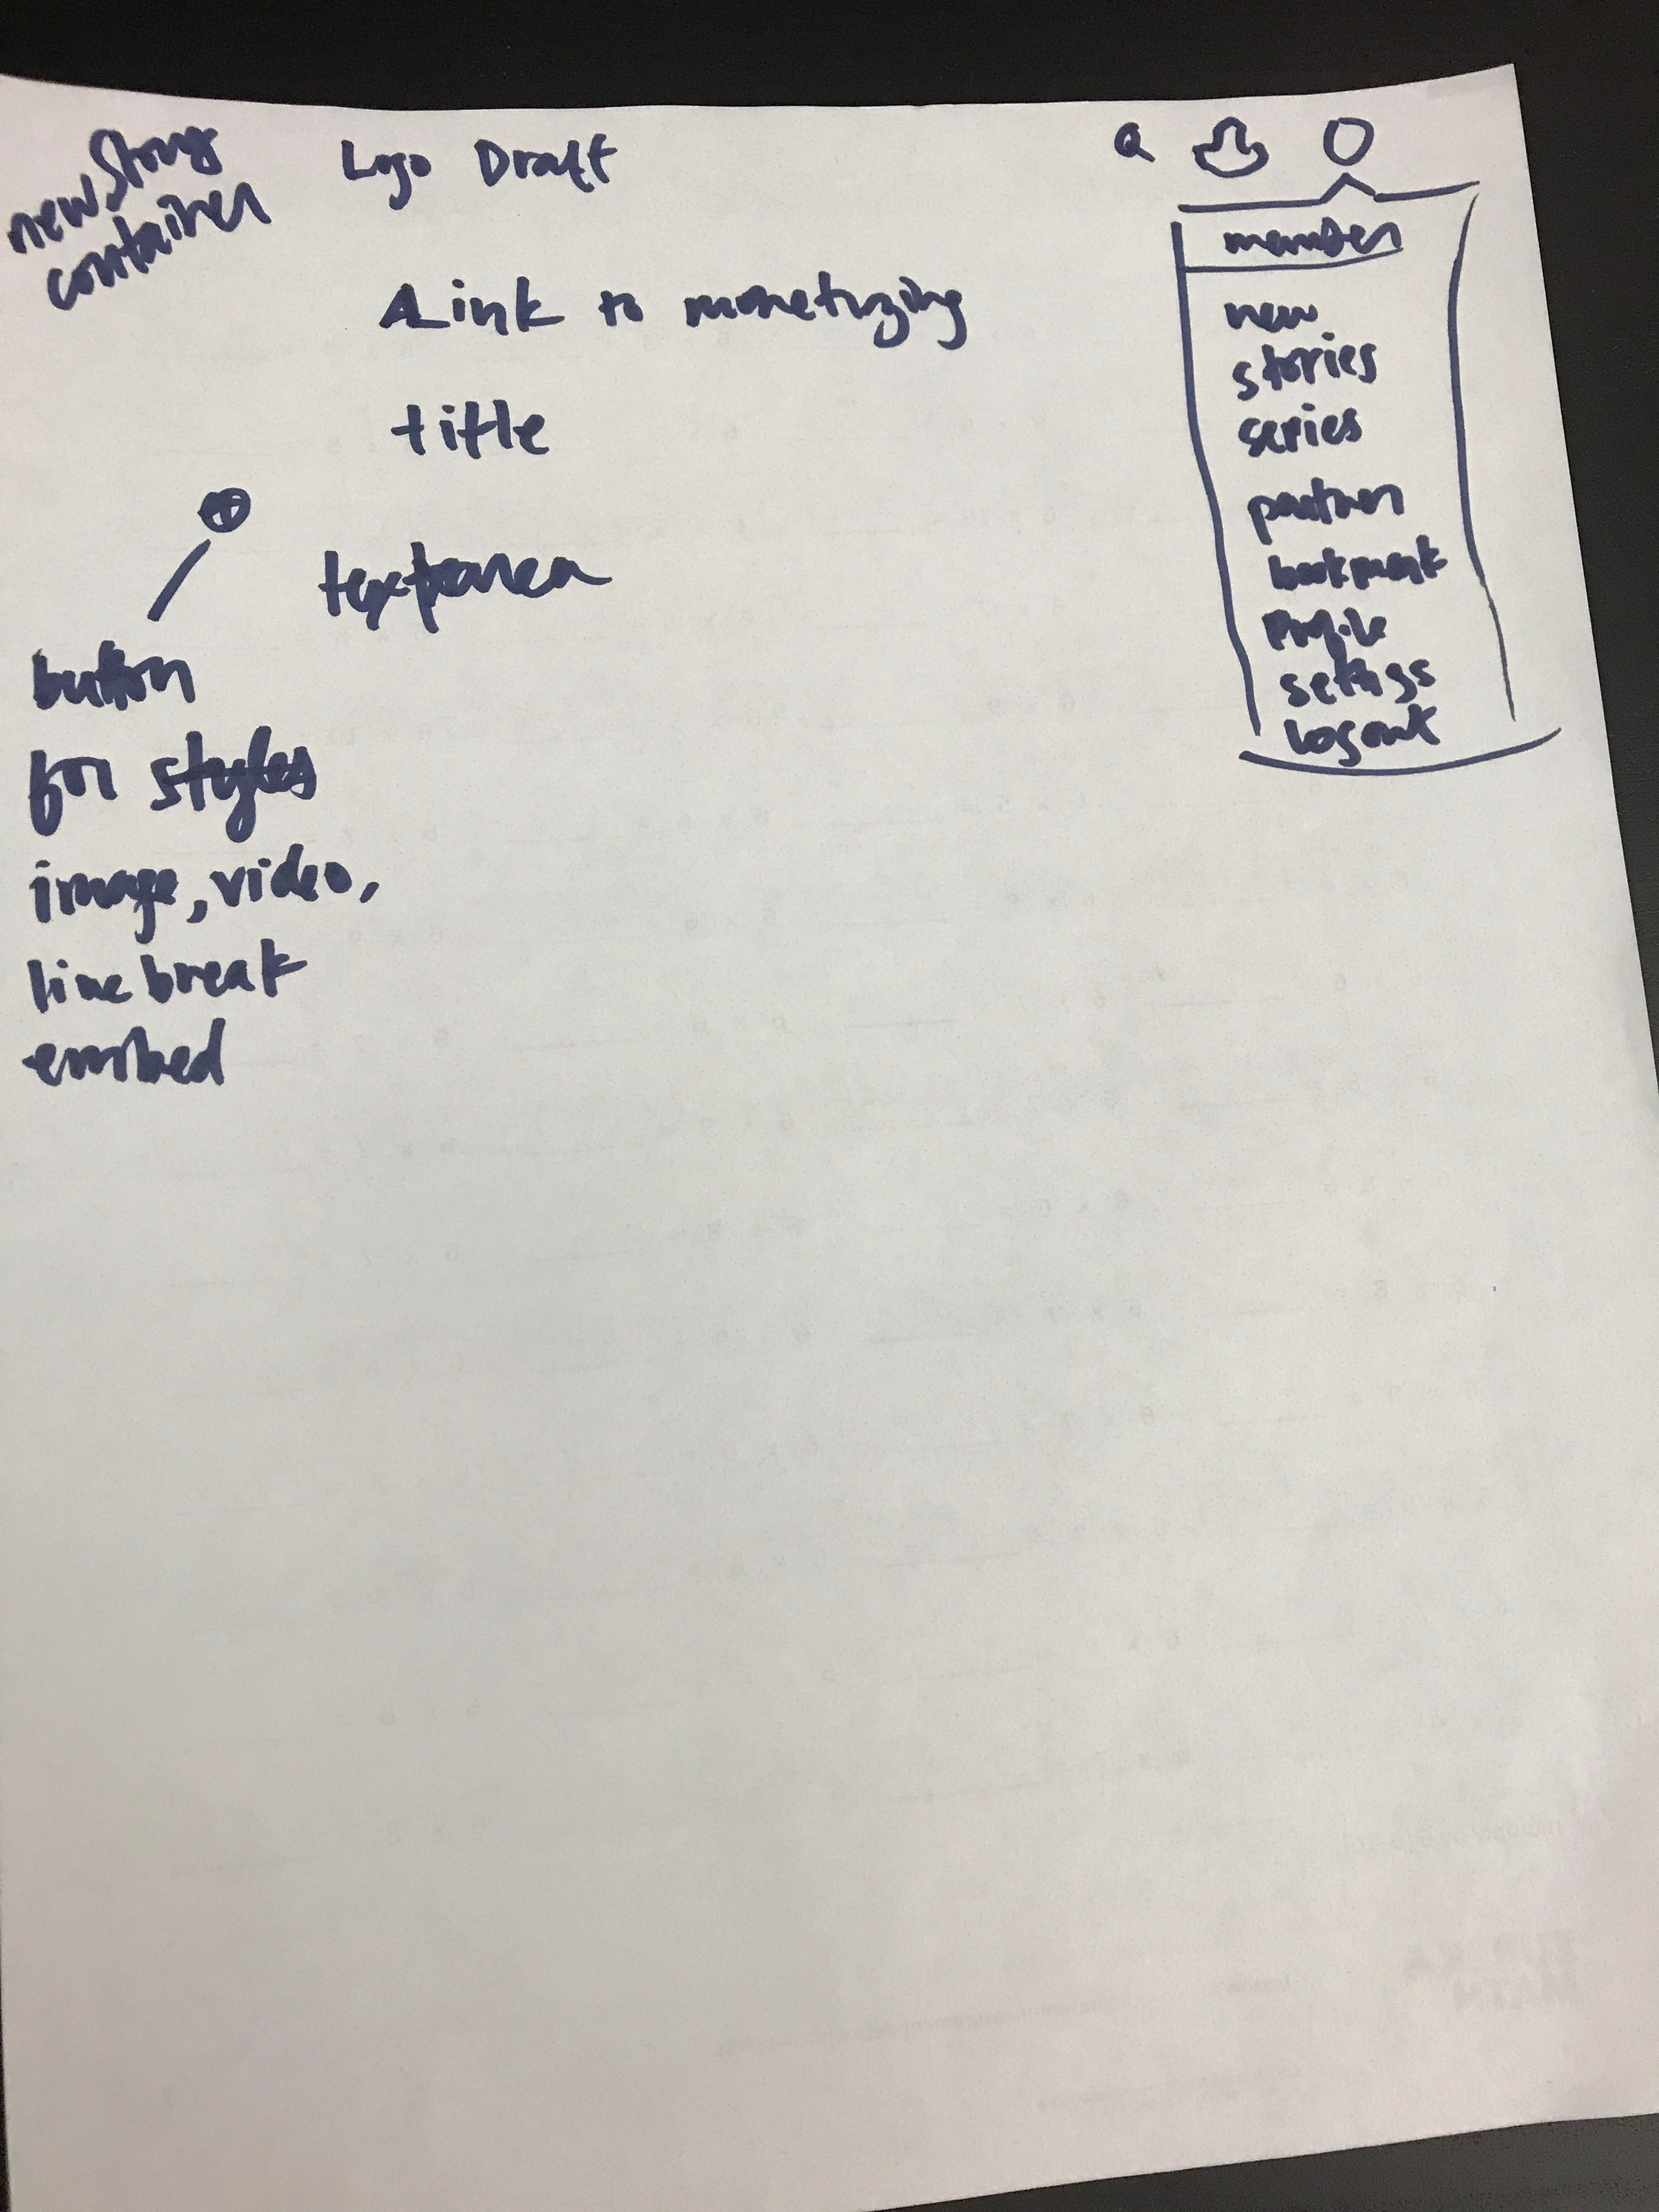 new Story
container
Logo Draft
Link to monetizing
title
textarea
button
for styles
image, video,
line break
embed
member
new
stories
series
partner
bookmark
Profile
settings
logout